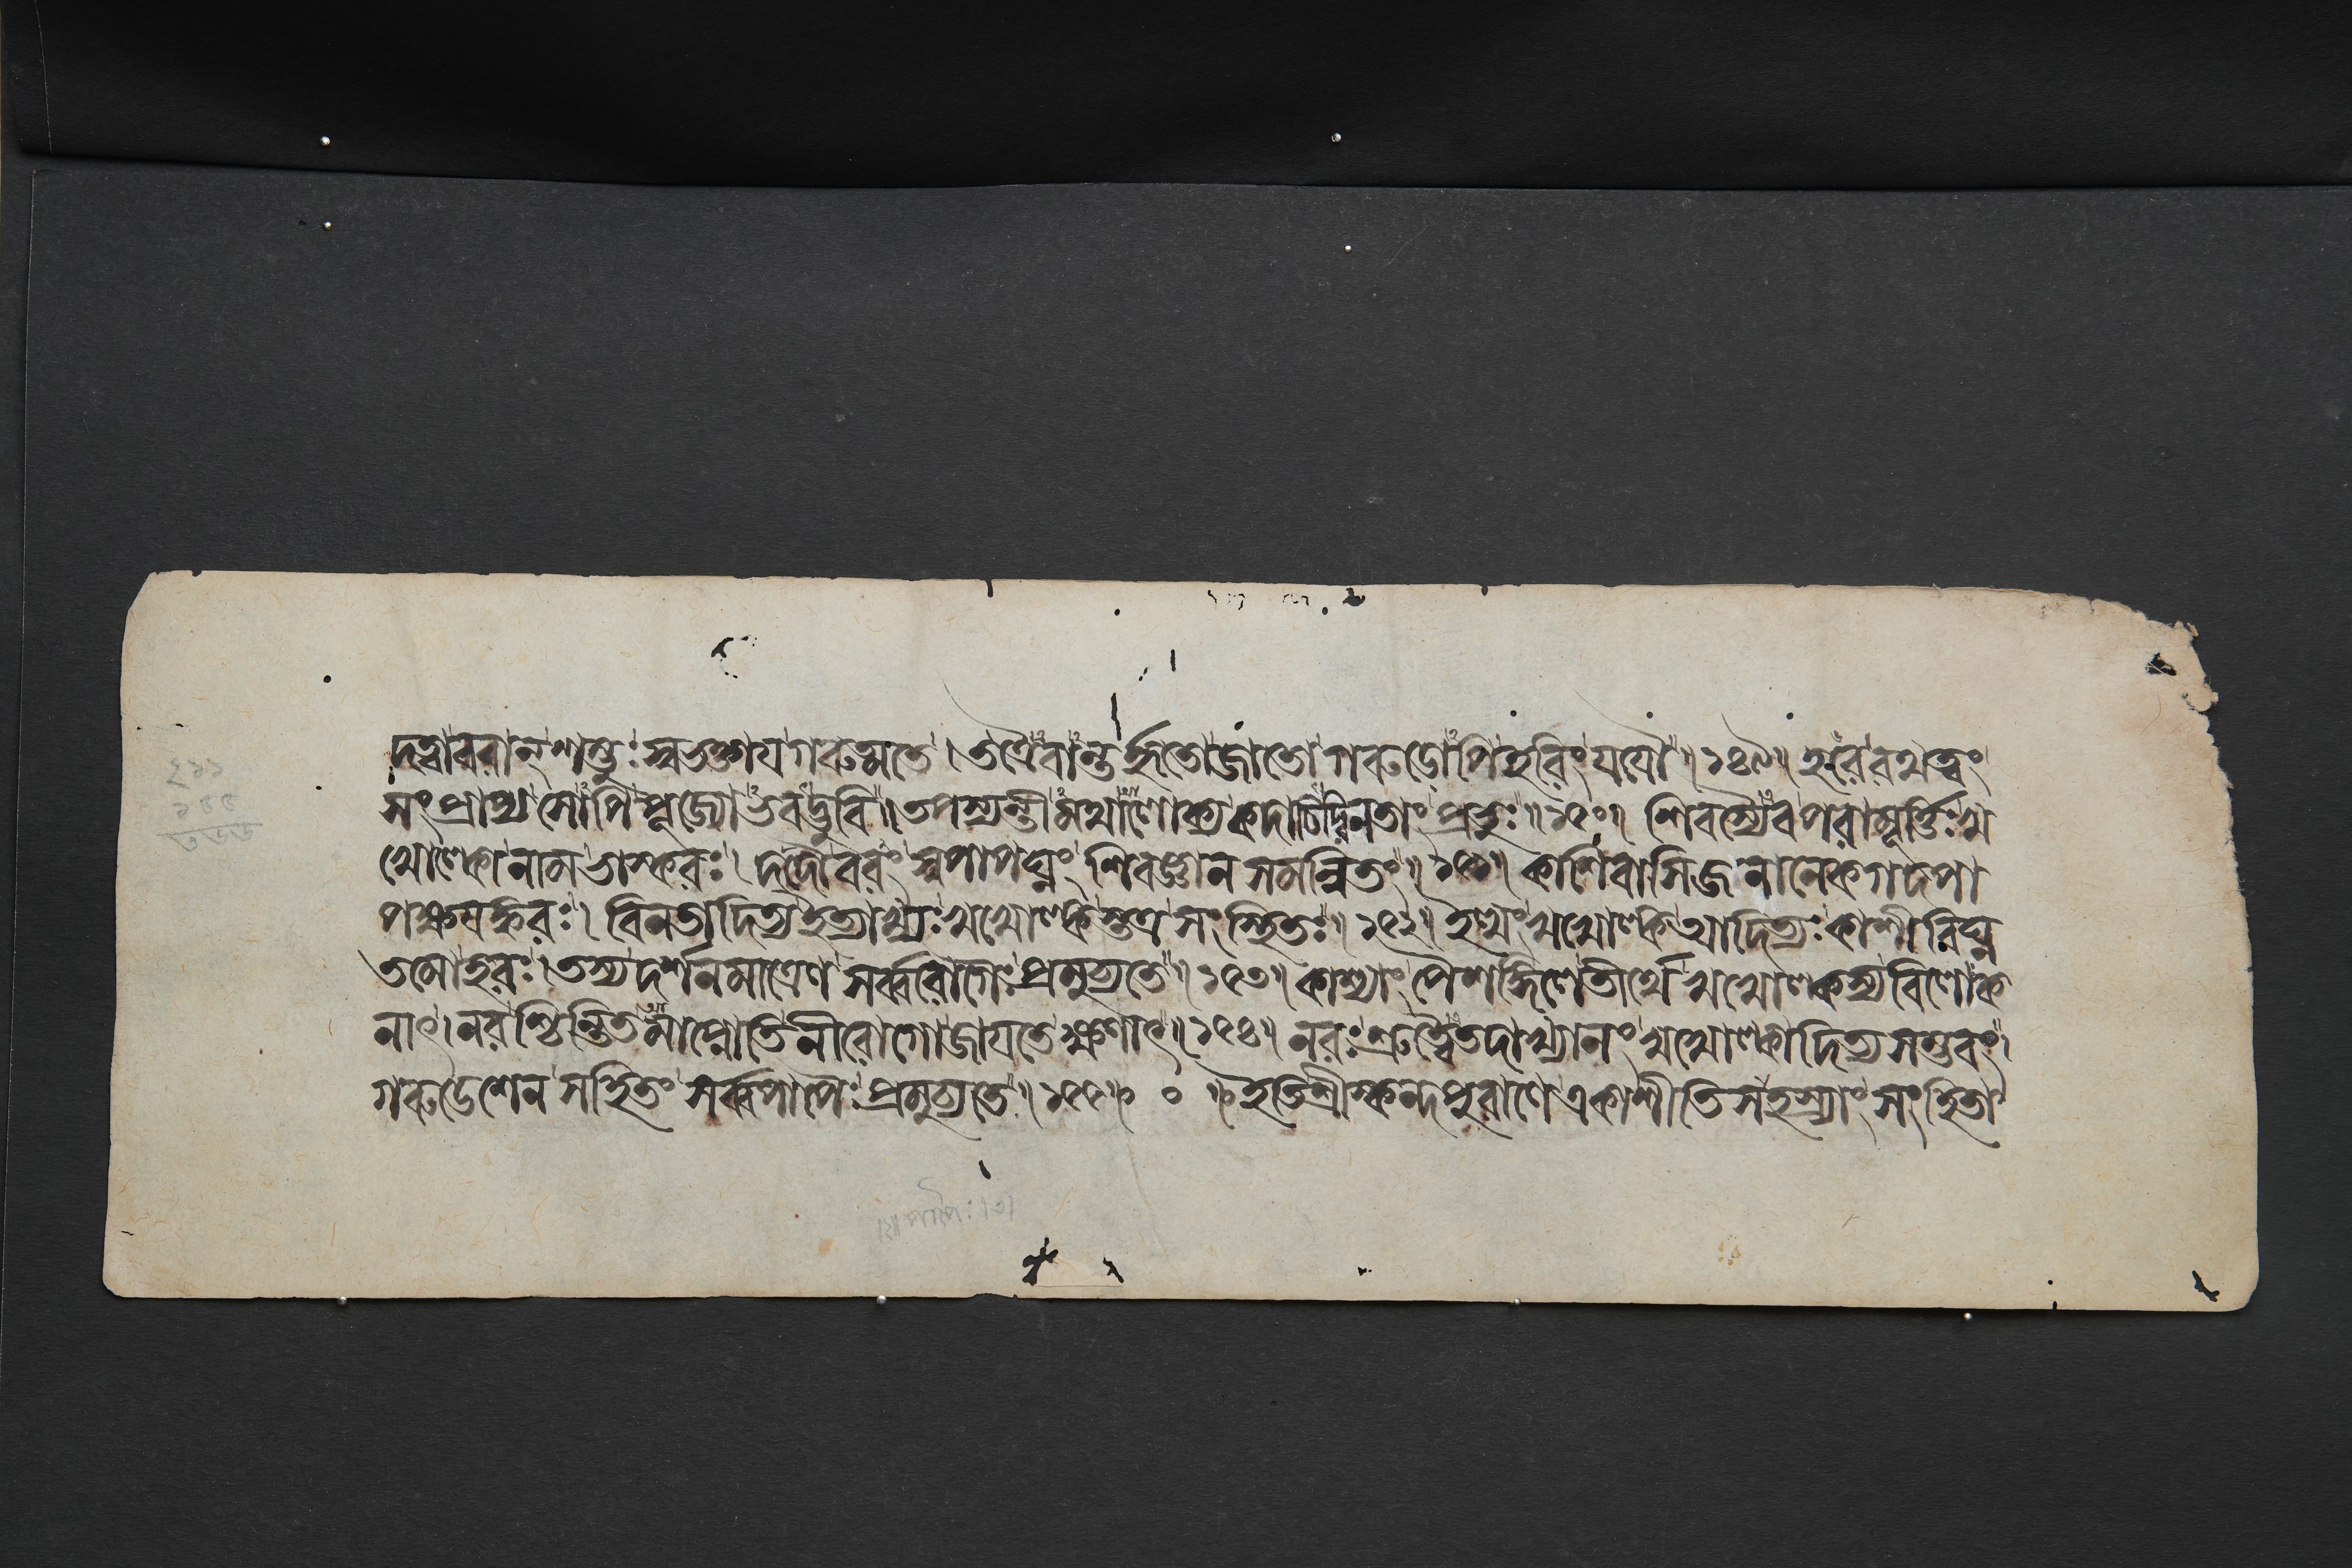 দত্বা বরান্ শম্ভুঃ স্বভক্তায গরুত্মতে । তত্রৈবান্তর্হিতো জাতো গরুডোপি হরিং যযৌ ॥ ১৪৯ ॥ হরেরথত্বং
সংপ্রাপ্য সোপি পূজ্যোভবদ্ভুবি ॥ তপস্যন্তীমথালোক্য কদাচিদ্বিনতাং প্রভুঃ ॥ ১৫০ ॥ শিবস্যৈব পরামূর্ত্তিঃ খ
খোল্কো নাম ভাস্করঃ । দদৌ বরং স্বপাপঘ্নং শিবজ্ঞান সমন্বিতং ॥ ১৫১ ॥ কাশিবাসিজনানেকগদপা
পক্ষযঙ্করঃ । বিনতাদিত্য ইত্যাখ্যঃ খখোল্কস্তত্র সংস্থিতঃ ॥ ১৫২ ॥ ইত্থং খখোল্ক আদিত্যঃ কাশীবিঘ্ন
তমোহরঃ । তস্য দর্শনমাত্রেণ সর্ব্বরোগৈঃ প্রমুচ্যতে ॥ ১৫৩ ॥ কাশ্যাং পৈশঙ্গিলে তীর্থে খখোল্কস্য বিলোক
নাৎ । নরশ্চিন্তিতমাপ্নোতি নীরোগো জাযতে ক্ষণাৎ ॥ ১৫৪ ॥ নরঃ শ্রুত্বৈতদাখ্যানং খখোল্কাদিত্য সম্ভবং ।
গরুডেশেন সহিতং সর্ব্বপাপৈঃ প্রমুচ্যতে ॥ ১৫৫ ॥ ০ ॥ ইতি শ্রীস্কন্দপুরাণে একাশীতি সহস্র্যাং সংহিতা